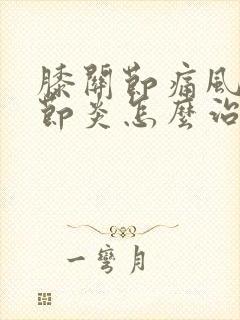 膝關節痛風
節炎怎麼治
一彎月